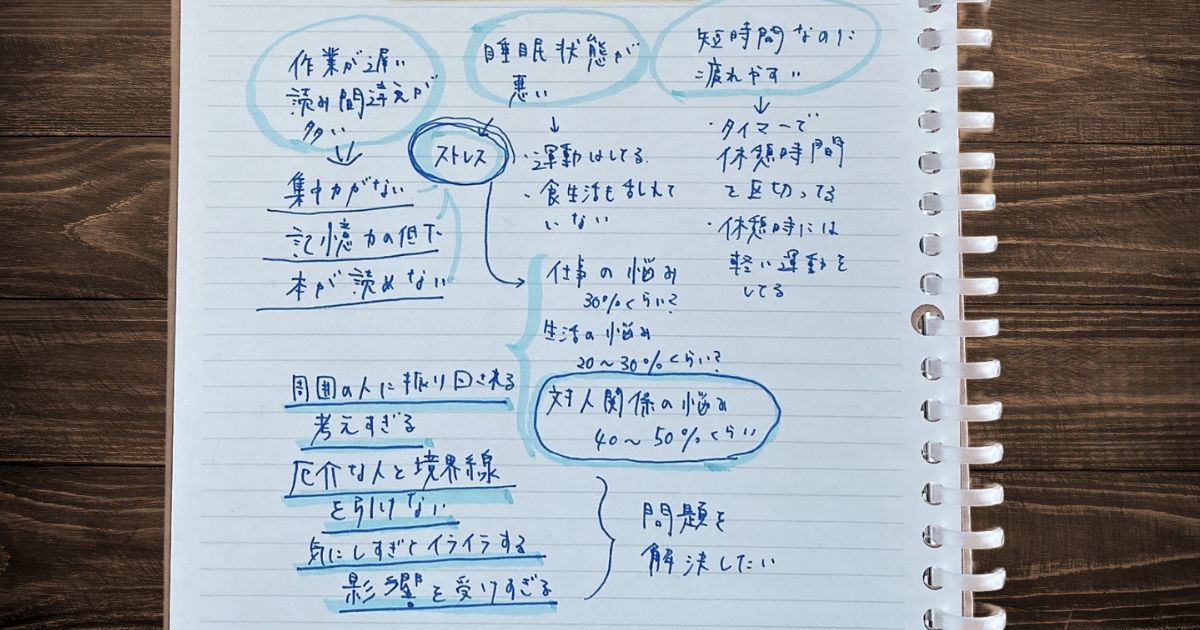 作業が遅い
読み間違えが
多い
集中力がない
記憶力の低下
本が読めない
睡眠状態が
悪い
ストレス
・運動はしてる
・食生活も乱れて
いない
短時間なのに
疲れやすい
・タイマーで
休憩時間
を区切ってる
・休憩時には
軽い運動を
してる
仕事の悩み
30%くらい?
生活の悩み
20~30%くらい?
対人関係の悩み
40~50%くらい
周囲の人に振り回される
考えすぎる
厄介な人と境界線
を引けない
気にしすぎてイライラする
影響を受けすぎる
問題を
解決したい